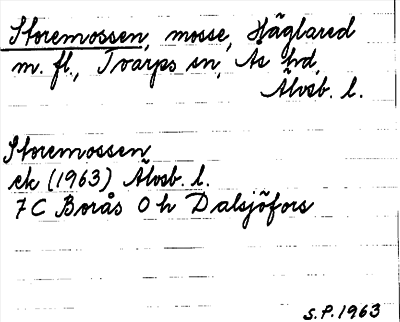 Storemossen, mosse, Häglared
m. fl., Tvärps sn, Ås hd,
Älvsb. l.
Storemossen
ek (1963) Älvsb. l.
7C Borås 0 h Dalsjöfors
S.P. 1963